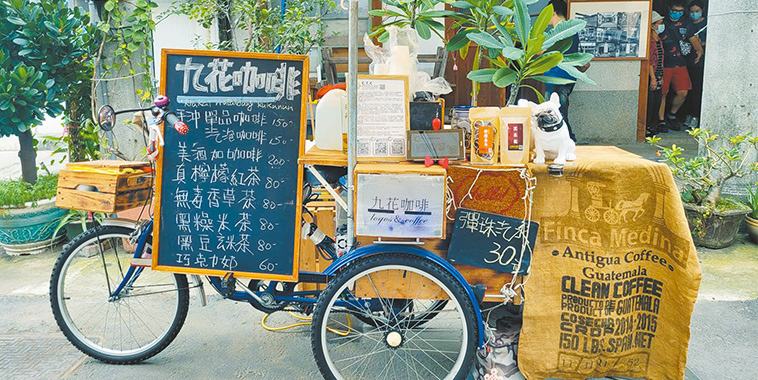 九花咖啡
手沖單品咖啡 150
氣泡咖啡 150
美酒加咖啡 200
真檸檬紅茶 80-
無毒香草茶 80-
黑糙米茶 80-
黑豆玄米茶 80-
巧克力奶 60-
九花咖啡
logos & coffee
彈珠汽水
30
Finca Medina
Antigua Coffee
Guatemala
CLEAN COFFEE
PRODUCTO DE
GUATEMALA
COSECHA
2014-2015
150 LBS. SPAN. NET